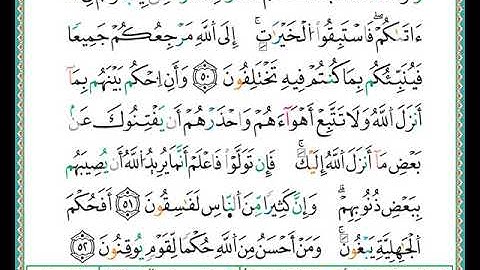 ءَاتَىٰكُمْ ۖ فَاسْتَبِقُوا۟ الْخَيْرَٰتِ ۚ إِلَى اللَّهِ مَرْجِعُكُمْ جَمِيعًا
فَيُنَبِّئُكُم بِمَا كُنتُمْ فِيهِ تَخْتَلِفُونَ ٥٠ وَأَنِ احْكُم بَيْنَهُم بِمَآ
أَنزَلَ اللَّهُ وَلَا تَتَّبِعْ أَهْوَآءَهُمْ وَاحْذَرْهُمْ أَن يَفْتِنُوكَ عَنۢ
بَعْضِ مَآ أَنزَلَ اللَّهُ إِلَيْكَ ۖ فَإِن تَوَلَّوْا۟ فَاعْلَمْ أَنَّمَا يُرِيدُ اللَّهُ أَن يُصِيبَهُم
بِبَعْضِ ذُنُوبِهِمْ ۗ وَإِنَّ كَثِيرًا مِّنَ النَّاسِ لَفَٰسِقُونَ ٥١ أَفَحُكْمَ
الْجَٰهِلِيَّةِ يَبْغُونَ ۚ وَمَنْ أَحْسَنُ مِنَ اللَّهِ حُكْمًا لِّقَوْمٍ يُوقِنُونَ ٥٢